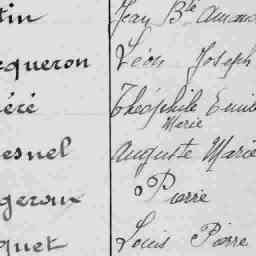 tin Jean Bte Amand
cqueron Léon Joseph
éré Théophile Emile
Marie
esnel Auguste Marie
geroux Pierre
quet Louis Pierre